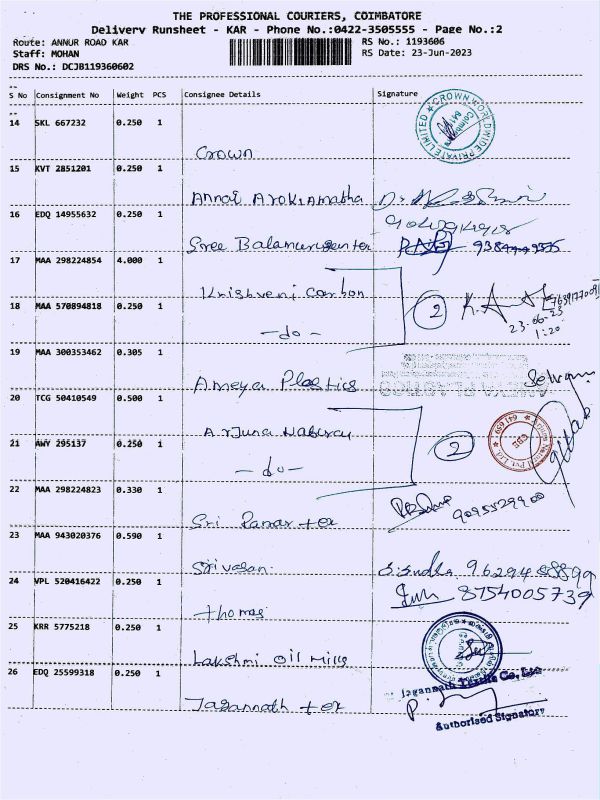 THE PROFESSIONAL COURIERS, COIMBATORE
Delivery Runsheet - KAR - Phone No.:0422-3505555 - Page No.:2
Route: ANNUR ROAD KAR
RS No.: 1193606
Staff: MOHAN
RS Date: 23-Jun-2023
DRS No.: DCJB119360602
S No Consignment No Weight PCS Consignee Details Signature
14 SKL 667232 0.250 1
Crown
CROWN WORLDWIDE PRIVATE LIMITED
Coimbatore
15 KVT 2851201 0.250 1
Annai Arokiamatha
16 EDQ 14955632 0.250 1
Sree Balamurugan ter
17 MAA 298224854 4.000 1
Krishveni Carbon
2
18 MAA 570894818 0.250 1
-do-
23-06-23
1:20
19 MAA 300353462 0.305 1
Ameya Plastics
Selvam
20 TCG 50410549 0.500 1
Arjuna
2
641 659
21 AWY 295137 0.250 1
-do-
22 MAA 298224823 0.330 1
Sri Ramar tex
9095529900
23 MAA 943020376 0.590 1
Srivasan
24 VPL 520416422 0.250 1
Thomas
8754005739
25 KRR 5775218 0.250 1
Lakshmi Oil Mills
26 EDQ 25599318 0.250 1
Jagannath tex
Jagannath Textile Co. Ltd
Authorised Signatory